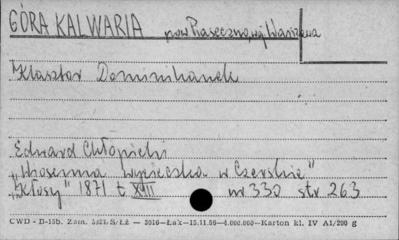 GÓRA KALWARIA pow Piaseczno, woj Warszawa
Klasztor Dominikanek
Edward Chłopicki
„Wiosenna wycieczka w Czerskie"
„Kłosy" 1871 t XIII nr 330 str 263
CWD - D-15b. Zam. S/ŁŻ — 3016—Łak—15.11.56—4.000.000—Karton kl. IV A1/200 g